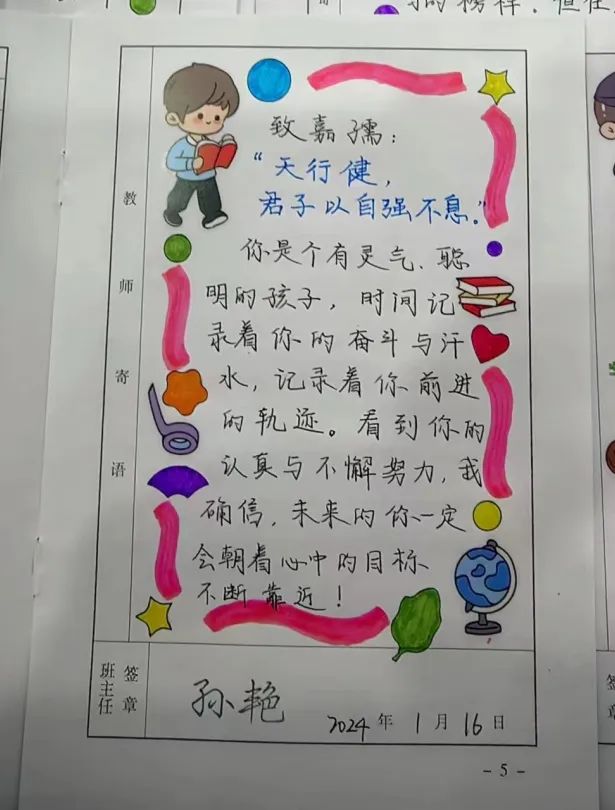 的榜样,但在
教师寄语
致嘉孺:
“天行健,
君子以自强不息。”
你是个有灵气、聪
明的孩子,时间记
录着你的奋斗与汗
水,记录着你前进
的轨迹。看到你的
认真与不懈努力,我
确信,未来的你一定
会朝着心中的目标
不断靠近!
班主任
签章
孙艳
2024年1月16日
- 5 -